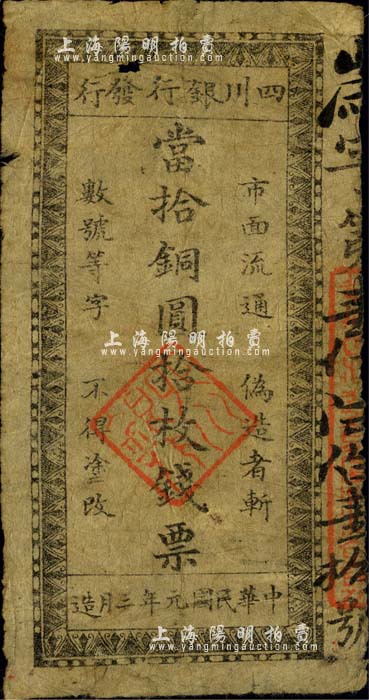 上海陽明拍賣
www.yangmingauction.com
四川銀行發行
市面流通 偽造者斬
當拾銅圓拾枚錢票
數號等字 不得塗改
上海陽明拍賣
www.yangmingauction.com
中華民國元年三月造
上海陽明拍賣
www.yangmingauction.com